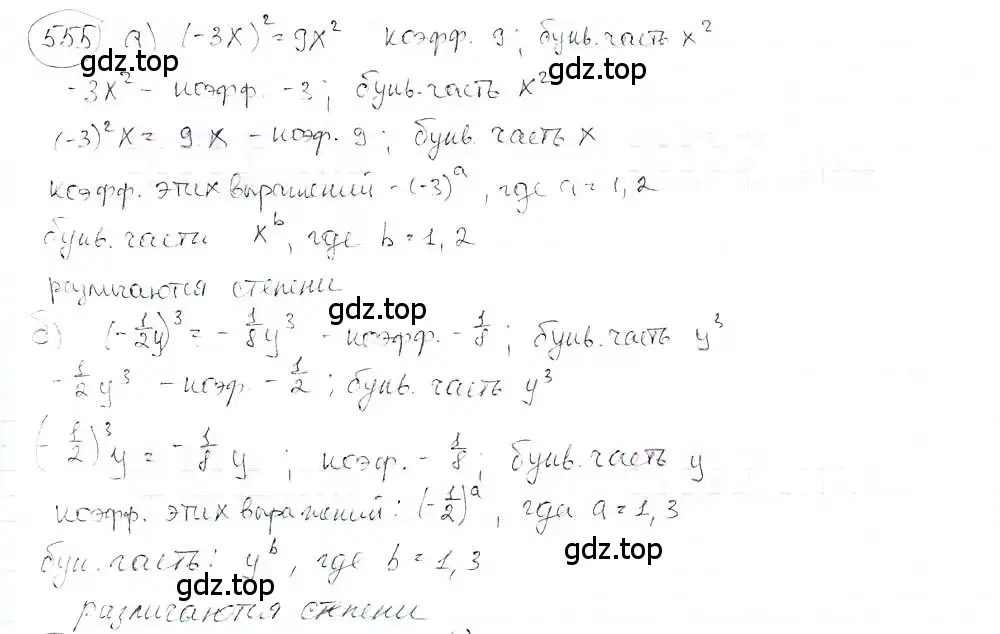 555 а) (-3x)² = 9x² коэфф. 9; букв. часть x²
gdz.top
gdz.top
-3x² - коэфф. -3; букв. часть x²
(-3)²x = 9x - коэф. 9; букв. часть x
коэфф. этих выражений - (-3)ᵃ, где a = 1, 2
букв. части xᵇ, где b = 1, 2
различаются степени
gdz.top
б) (-1/2y)³ = -1/8y³ - коэфф. -1/8; букв. часть y³
-1/2y³ - коэф. -1/2; букв. часть y³
(-1/2)³y = -1/8y; коэф. -1/8; букв. часть y
коэфф. этих выражений: (-1/2)ᵃ, где a = 1, 3
gdz.top
бук. часть: yᵇ, где b = 1, 3
gdz.top
различаются степени